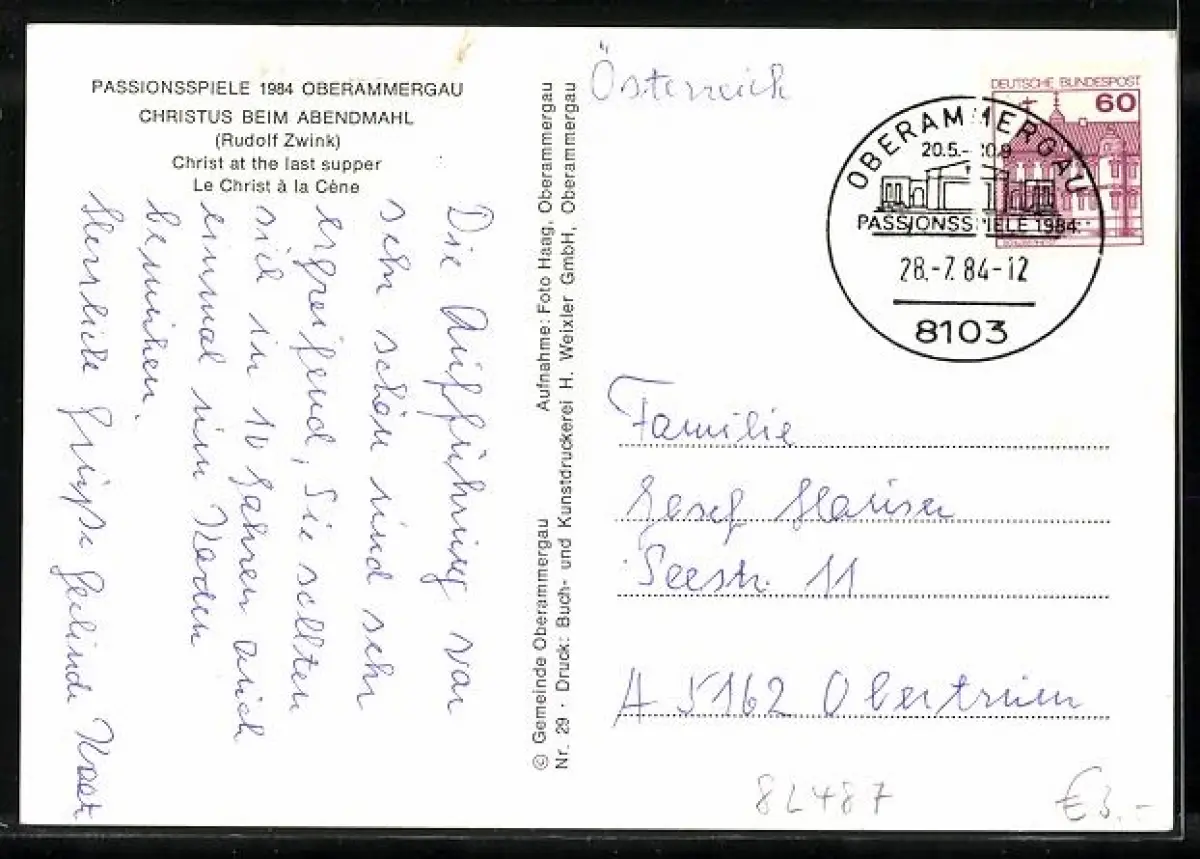 PASSIONSSPIELE 1984 OBERAMMERGAU
CHRISTUS BEIM ABENDMAHL
(Rudolf Zwink)
Christ at the last supper
Le Christ à la Cène
Die Aufführung war
sehr schön und sehr
ergreifend, Sie sollten
sich in 10 Jahren auch
einmal um Karten
bemühen.
Herzliche Grüße
© Gemeinde Oberammergau
Aufnahme: Foto Haag, Oberammergau
Nr. 29 · Druck: Buch- und Kunstdruckerei H. Weixler GmbH, Oberammergau
Österreich
DEUTSCHE BUNDESPOST
60
OBERAMMERGAU
20.5.- 30.9
PASSIONSSPIELE 1984
28.-7.84-12
8103
Familie
Josef
Seestr. 11
A 5162 Obertrum
82487
€ 3.-